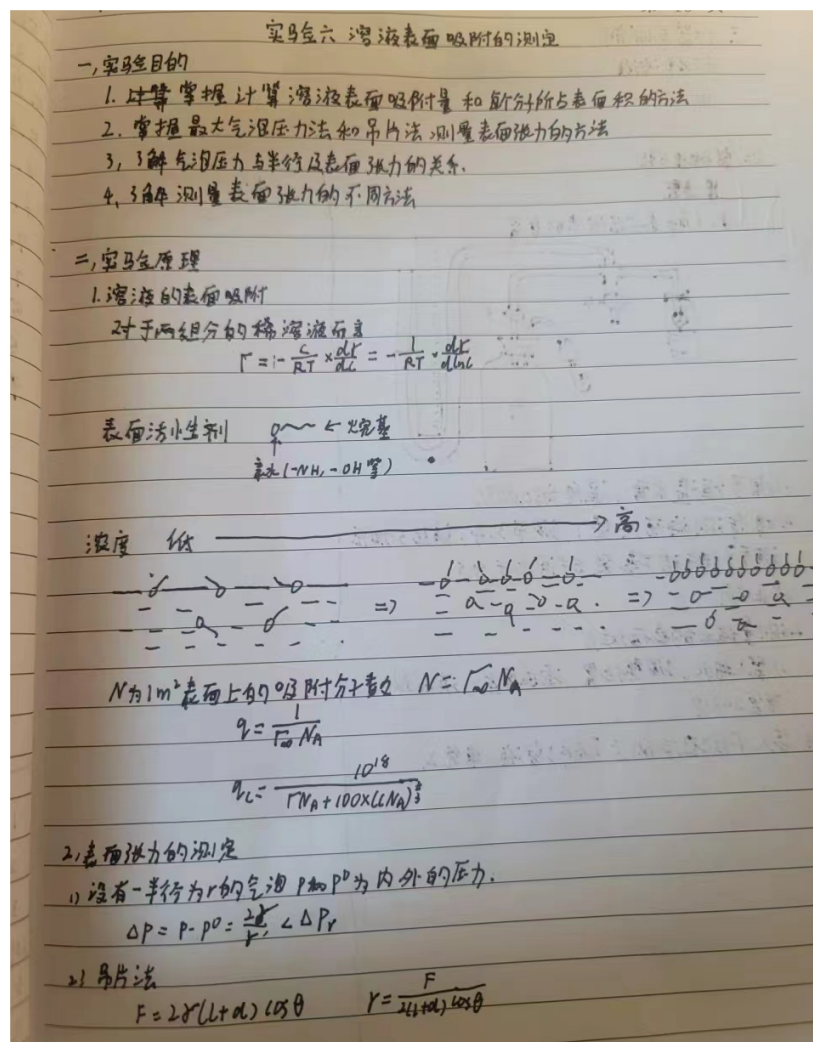 实验六 溶液表面吸附的测定
一、实验目的
1. 掌握计算溶液表面吸附量和每个分子所占表面积的方法
2. 掌握最大气泡压力法和吊片法测量表面张力的方法
3, 了解气泡压力与半径及表面张力的关系.
4, 了解测量表面张力的不同方法
二, 实验原理
1. 溶液的表面吸附
对于两组分的稀溶液而言
Γ = - C/RT × dγ/dC = - 1/RT · dγ/dlnC
表面活性剂 ← 烷基
亲水 (-NH, -OH等)
浓度 低 → 高.
⇒ ⇒
N为1m²表面上的吸附分子数 N = Γ∞ NA
q = 1/(Γ∞ NA)
qc = 10^18/(ΓNA+100×(CNA)^(2/3))
2, 表面张力的测定
1) 设有一半径为r的气泡 P和P⁰为内外的压力.
ΔP = P-P⁰ = 2γ/r' < ΔPr
2) 吊片法
F = 2γ(l+d) cosθ γ = F/(2(l+d) cosθ)